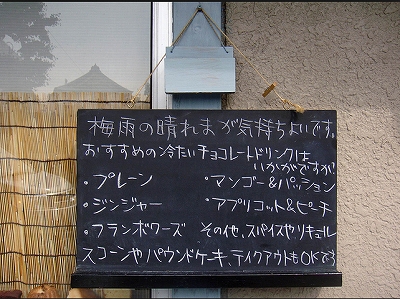 梅雨の晴れまが気持ちよいです。
おすすめの冷たいチョコレートドリンクは
いかがですか
・プレーン
・マンゴー&パッション
・ジンジャー
・アプリコット&ピーチ
・フランボワーズ
その他、スパイスやリキュール
スコーンやパウンドケーキ、テイクアウトもOKです